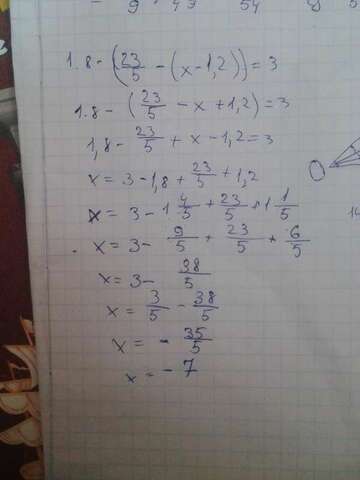 9 · 49 54
1.8 - (23/5 - (x - 1,2)) = 3
1.8 - (23/5 - x + 1,2) = 3
1,8 - 23/5 + x - 1,2 = 3
x = 3 - 1,8 + 23/5 + 1,2
x = 3 - 1 4/5 + 23/5 + 1 1/5
x = 3 - 9/5 + 23/5 + 6/5
x = 3 - 38/5
x = 3/5 - 38/5
x = - 35/5
x = - 7
O